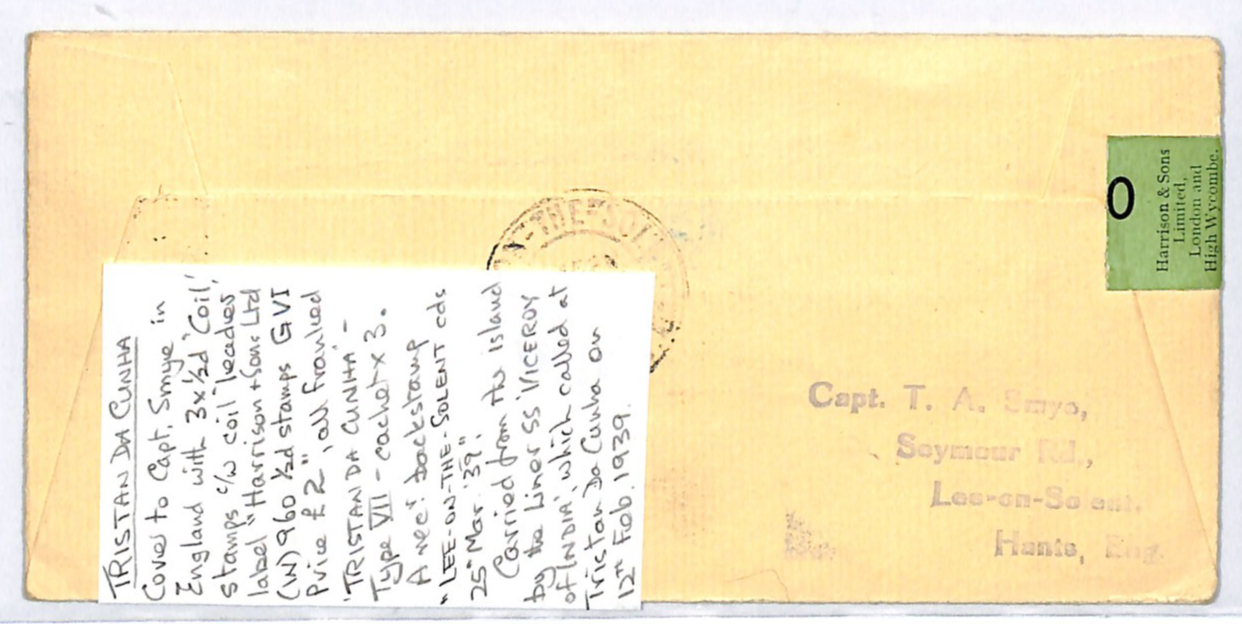 TRISTAN DA CUNHA
Cover to Capt. Smye in
England with 3x½d 'Coil'
stamps c/w coil leaders
label "Harrison & Sons Ltd
(W) 960 ½d stamps GVI
Price £2", all franked
'TRISTAN DA CUNHA' -
Type VII - cachet x 3.
A neat backstamp
"LEE-ON-THE-SOLENT cds
25" Mar. '39".
Carried from the island
by the Liner SS 'VICEROY
of INDIA', which called at
Tristan Da Cunha on
12th Feb. 1939.
-THE-SOL
O
Harrison & Sons
Limited,
London and
High Wycombe.
Capt. T. A. Smye,
Seymour Rd.,
Lee-on-Solent.
Hants, Eng.